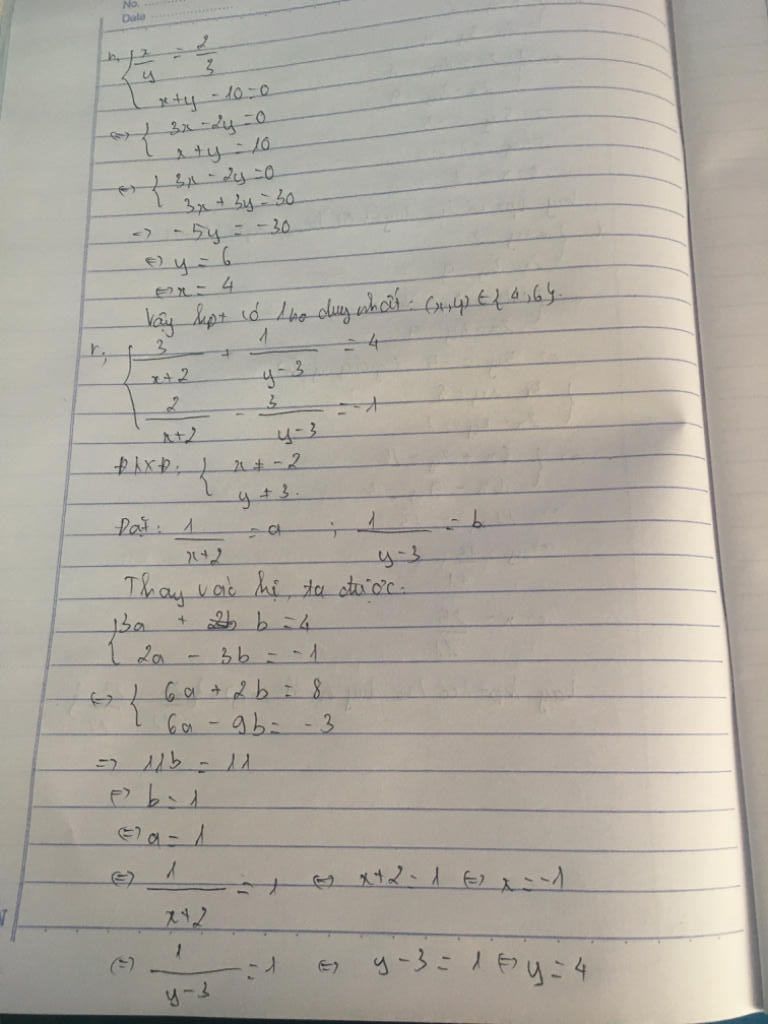 No. ......................
Date ......................
h, { x/y = 2/3
x+y - 10=0
⇔ { 3x - 2y=0
x+y = 10
⇔ { 3x - 2y=0
3x + 3y=30
=> -5y = -30
⇔ y = 6
⇔ x = 4
Vậy hpt có 1 no duy nhất: (x,y) ∈ { 4,6}.
r, { 3/(x+2) + 1/(y-3) = 4
2/(x+2) - 3/(y-3) = -1
ĐKXĐ: { x ≠ -2
y ≠ 3.
Đặt: 1/(x+2) = a ; 1/(y-3) = b
Thay vào hệ, ta được:
{ 3a + b = 4
2a - 3b = -1
⇔ { 6a + 2b = 8
6a - 9b = -3
=> 11b = 11
⇔ b = 1
⇔ a = 1
⇔ 1/(x+2) = 1 ⇔ x+2 = 1 ⇔ x = -1
⇔ 1/(y-3) = 1 ⇔ y-3 = 1 ⇔ y = 4